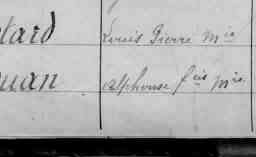 tard Louis Pierre Mie
uan Alphonse fcis Mie